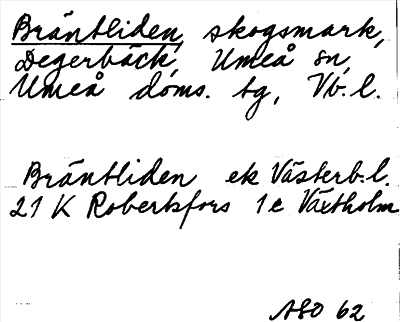 Bräntliden, skogsmark,
Degerbäck, Umeå sn,
Umeå doms. tg, Vb. l.
Bräntliden ek Västerb. l.
21 K Robertsfors 1 e Växtholm
ASO 62